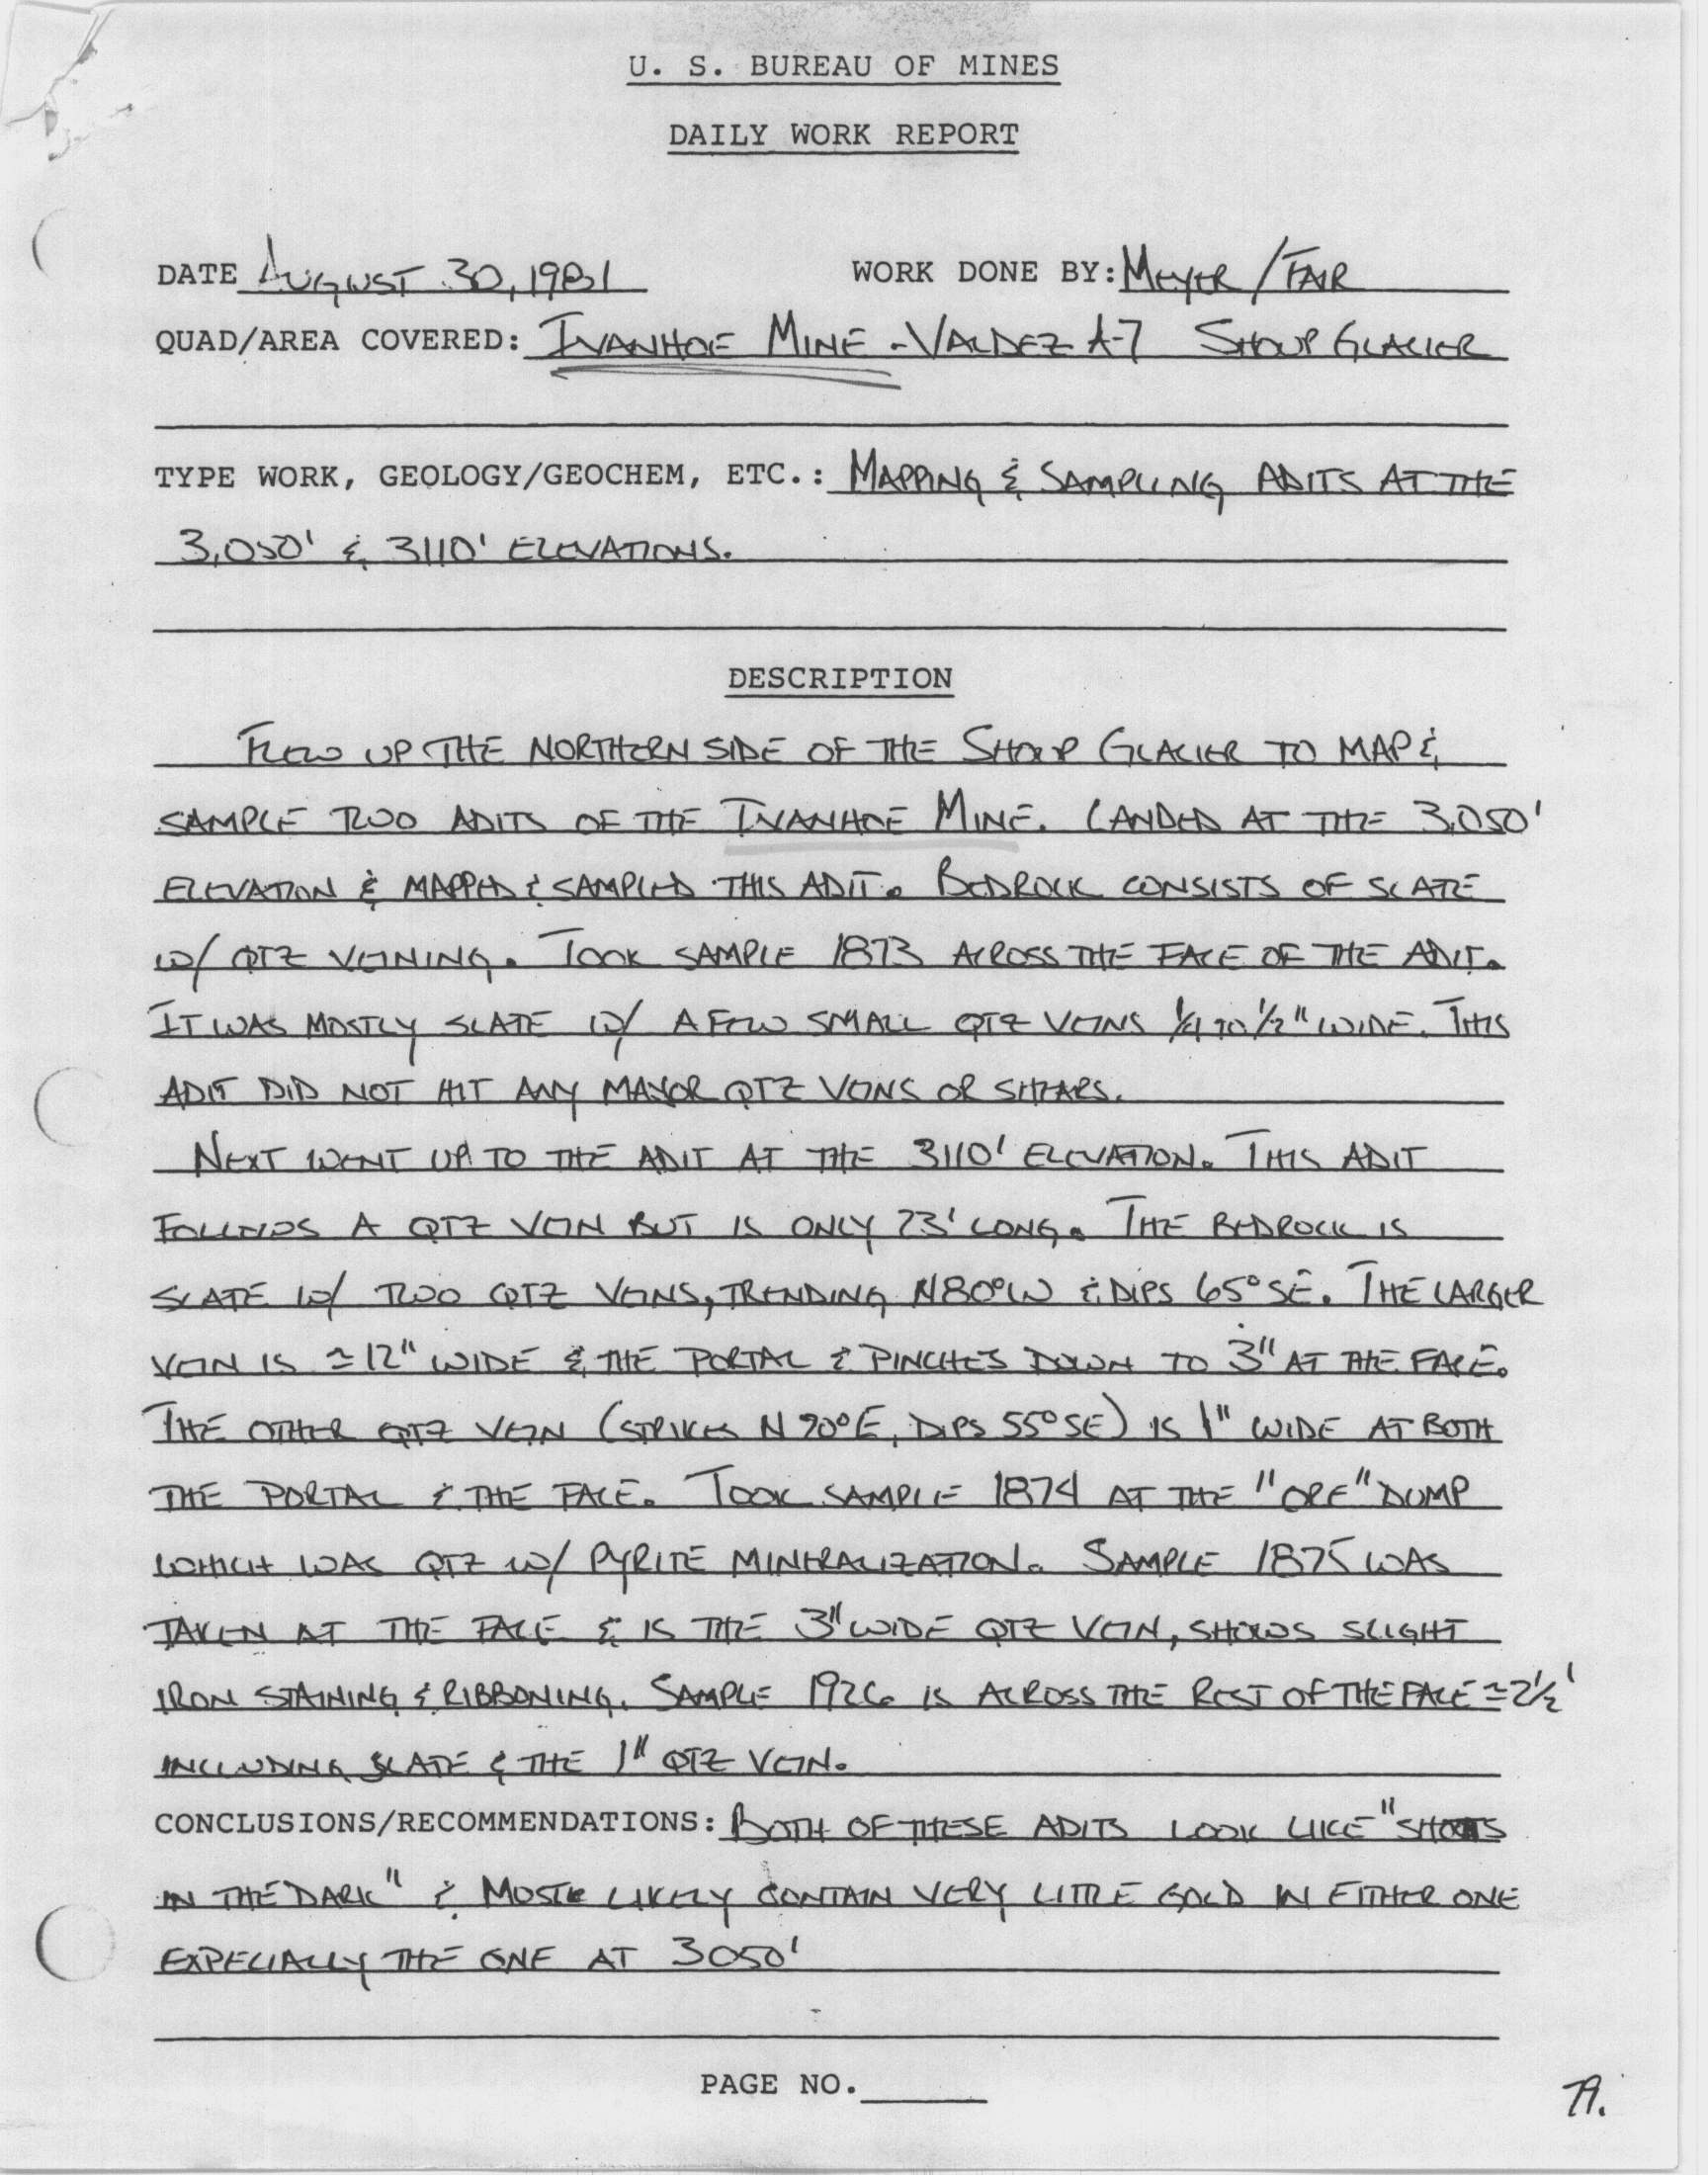 U. S. BUREAU OF MINES
DAILY WORK REPORT
DATE AUGUST 30, 1981 WORK DONE BY: MEYER / FAIR
QUAD/AREA COVERED: IVANHOE MINE - VALDEZ A-7 SHOUP GLACIER
TYPE WORK, GEOLOGY/GEOCHEM, ETC.: MAPPING & SAMPLING ADITS AT THE
3,050' & 3110' ELEVATIONS.
DESCRIPTION
FLEW UP THE NORTHERN SIDE OF THE SHOUP GLACIER TO MAP &
SAMPLE TWO ADITS OF THE IVANHOE MINE. LANDED AT THE 3,050'
ELEVATION & MAPPED & SAMPLED THIS ADIT. BEDROCK CONSISTS OF SLATE
W/ QTZ VEINING. TOOK SAMPLE 1873 ACROSS THE FACE OF THE ADIT.
IT WAS MOSTLY SLATE W/ A FEW SMALL QTZ VEINS 1/4 TO 1/2" WIDE. THIS
ADIT DID NOT HIT ANY MAJOR QTZ VEINS OR SHEARS.
NEXT WENT UP TO THE ADIT AT THE 3110' ELEVATION. THIS ADIT
FOLLOWS A QTZ VEIN BUT IS ONLY 23' LONG. THE BEDROCK IS
SLATE W/ TWO QTZ VEINS, TRENDING N80°W & DIPS 65°SE. THE LARGER
VEIN IS ≃12" WIDE & THE PORTAL & PINCHES DOWN TO 3" AT THE FACE.
THE OTHER QTZ VEIN (STRIKES N 90°E, DIPS 55°SE) IS 1" WIDE AT BOTH
THE PORTAL & THE FACE. TOOK SAMPLE 1874 AT THE "ORE" DUMP
WHICH WAS QTZ W/ PYRITE MINERALIZATION. SAMPLE 1875 WAS
TAKEN AT THE FACE & IS THE 3" WIDE QTZ VEIN, SHOWS SLIGHT
IRON STAINING & RIBBONING. SAMPLE 1926 IS ACROSS THE REST OF THE FACE ≃2 1/2'
INCLUDING SLATE & THE 1" QTZ VEIN.
CONCLUSIONS/RECOMMENDATIONS: BOTH OF THESE ADITS LOOK LIKE "SHOTS
IN THE DARK" & MOST LIKELY CONTAIN VERY LITTLE GOLD IN EITHER ONE
EXPECIALLY THE ONE AT 3050'
PAGE NO.